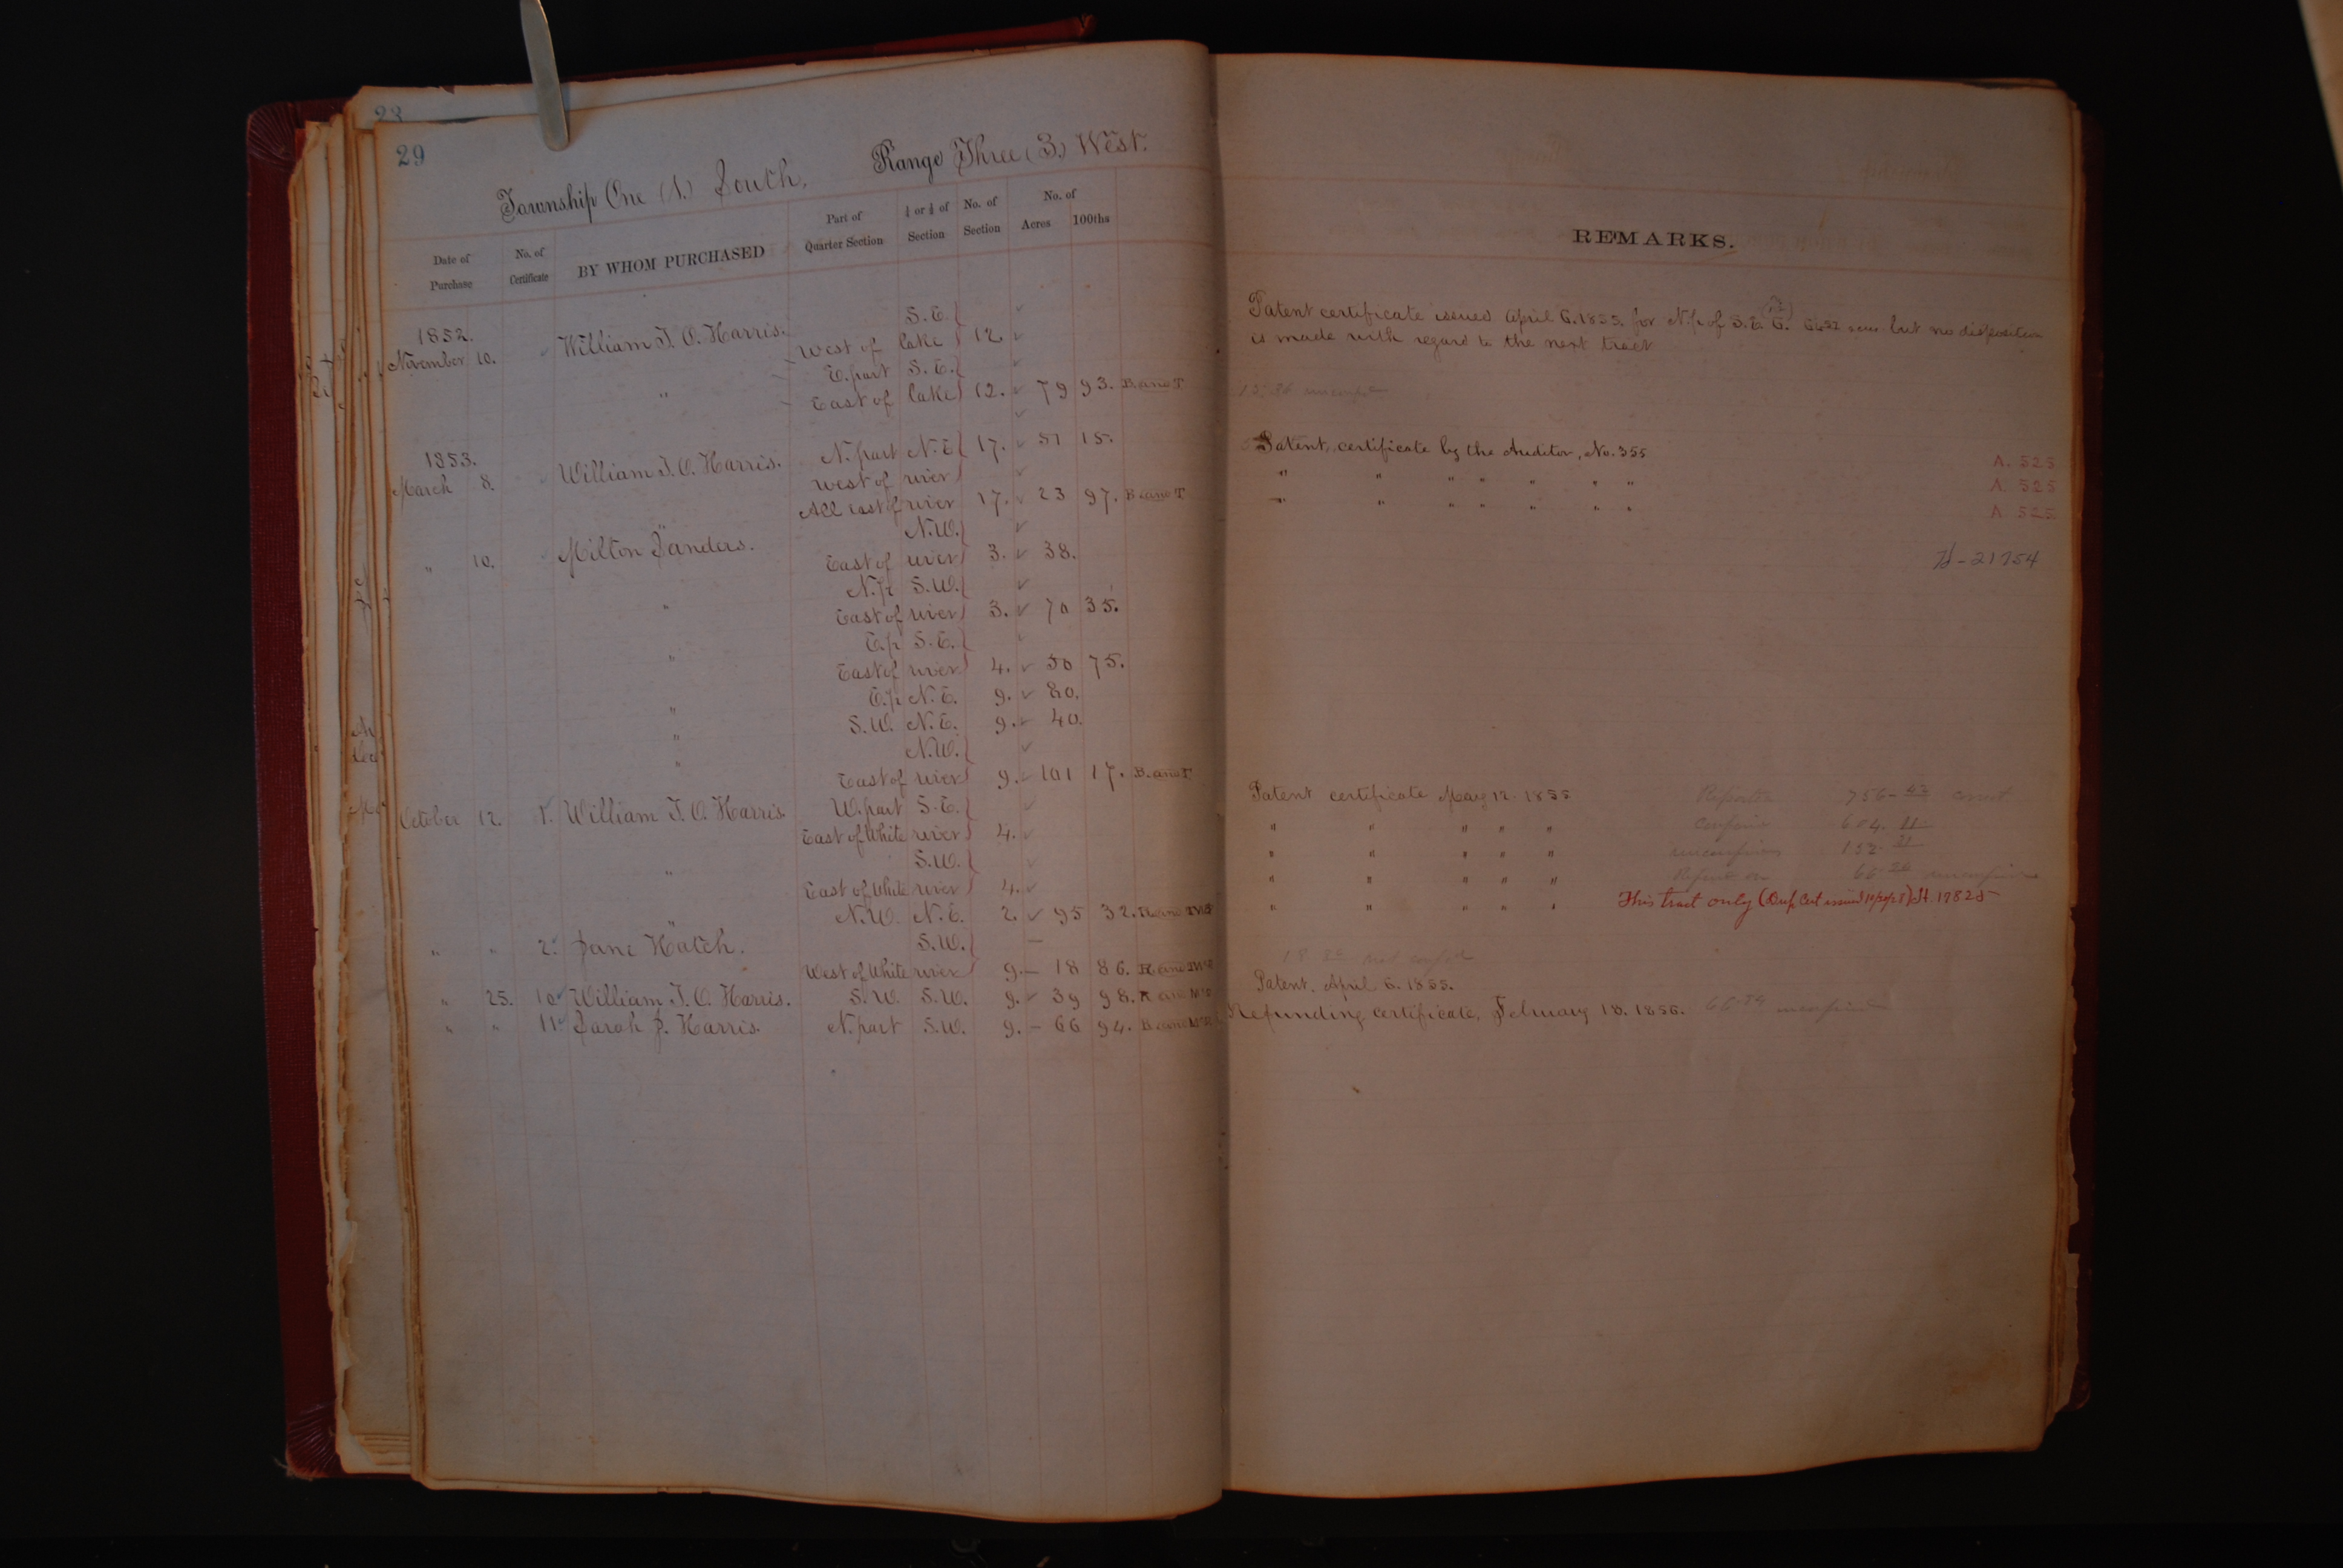 23
29
Township One (1.) South, Range Three (3.) West.
Date of Purchase No. of Certificate BY WHOM PURCHASED Part of Quarter Section ¼ or ½ of Section No. of Section No. of Acres 100ths
REMARKS.
1852. S.E.
November 10. William T. O. Harris. West of lake 12.
E. part S.E.
" East of lake 12. 79 93. B. and T
1853. N. part N.E. 17. 51 15.
March 8. William T. O. Harris. West of river
" All east of river 17. 23 97. B and T
N.W.
" 10. Milton Sanders. East of river 3. 38.
N.p S.W.
" East of river 3. 70 35.
E.p S.E.
" East of river 4. 50 75.
" E.p N.E. 9. 80.
" S.W. N.E. 9. 40.
" N.W.
East of river 9. 101 17. B. and T
October 12. 1. William T. O. Harris. W. part S.E.
East of White river 4.
" S.W.
East of White river 4.
" N.W. N.E. 2. 95 32.
" " 2. Jane Hatch. S.W.
West of White river 9. 18 86.
" 25. 10 William T. O. Harris. S.W. S.W. 9. 39 98.
" " 11 Sarah J. Harris. N. part S.W. 9. 66 94.
Patent certificate issued April 6. 1855. for N.p. of S.E. but no disposition
is made with regard to the next tract
Patent, certificate by the Auditor, No. 355 A. 525
" " " " " " " A. 525
" " " " " " " A. 525
H-21754
Patent certificate May 12. 1855 756
" " " " "
" " " " " 152
" " " " "
" " " " " This tract only (Dup Cert issued) H. 17825
Patent. April 6. 1855.
Refunding certificate, February 18. 1856.